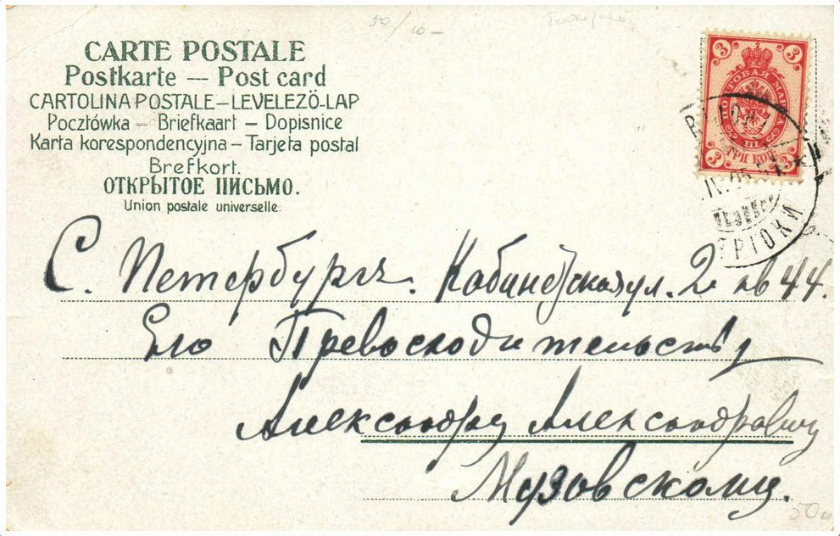 50/10-
CARTE POSTALE
Postkarte — Post card
CARTOLINA POSTALE – LEVELEZÖ-LAP
Pocztówka – Briefkaart – Dopisnice
Karta korespondencyjna – Tarjeta postal
Brefkort.
ОТКРЫТОЕ ПИСЬМО.
Union postale universelle.
3 3
ПОЧТОВАЯ МАРКА
3 ТРИ КОП. 3
ТЕРIОКИ
С. Петербургъ. Кабинетская ул. 2 кв 44.
Его Превосходительству
Александру Александровичу
Музовскому.
50